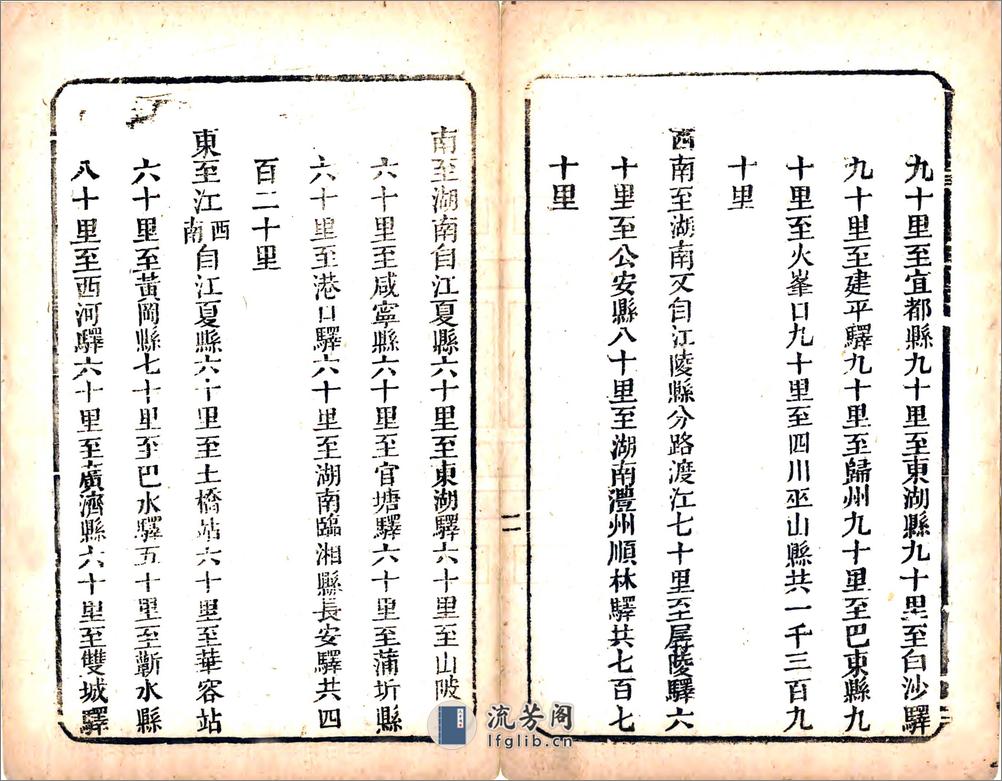 九十里至宜都縣九十里至東湖縣九十里至白沙驛
九十里至建平驛九十里至歸州九十里至巴東縣九
十里至火峯口九十里至四川巫山縣共一千三百九
十里
西南至湖南又自江陵縣分路渡江七十里至孱陵驛六
十里至公安縣八十里至湖南澧州順林驛共七百七
十里
二
南至湖南自江夏縣六十里至東湖驛六十里至山陂
六十里至咸寧縣六十里至官塘驛六十里至蒲圻縣
六十里至港口驛六十里至湖南臨湘縣長安驛共四
百二十里
東至江西南自江夏縣六十里至土橋站六十里至華容站
六十里至黃岡縣七十里至巴水驛五十里至蘄水縣
八十里至西河驛六十里至廣濟縣六十里至雙城驛
流芳阁
lfglib.cn